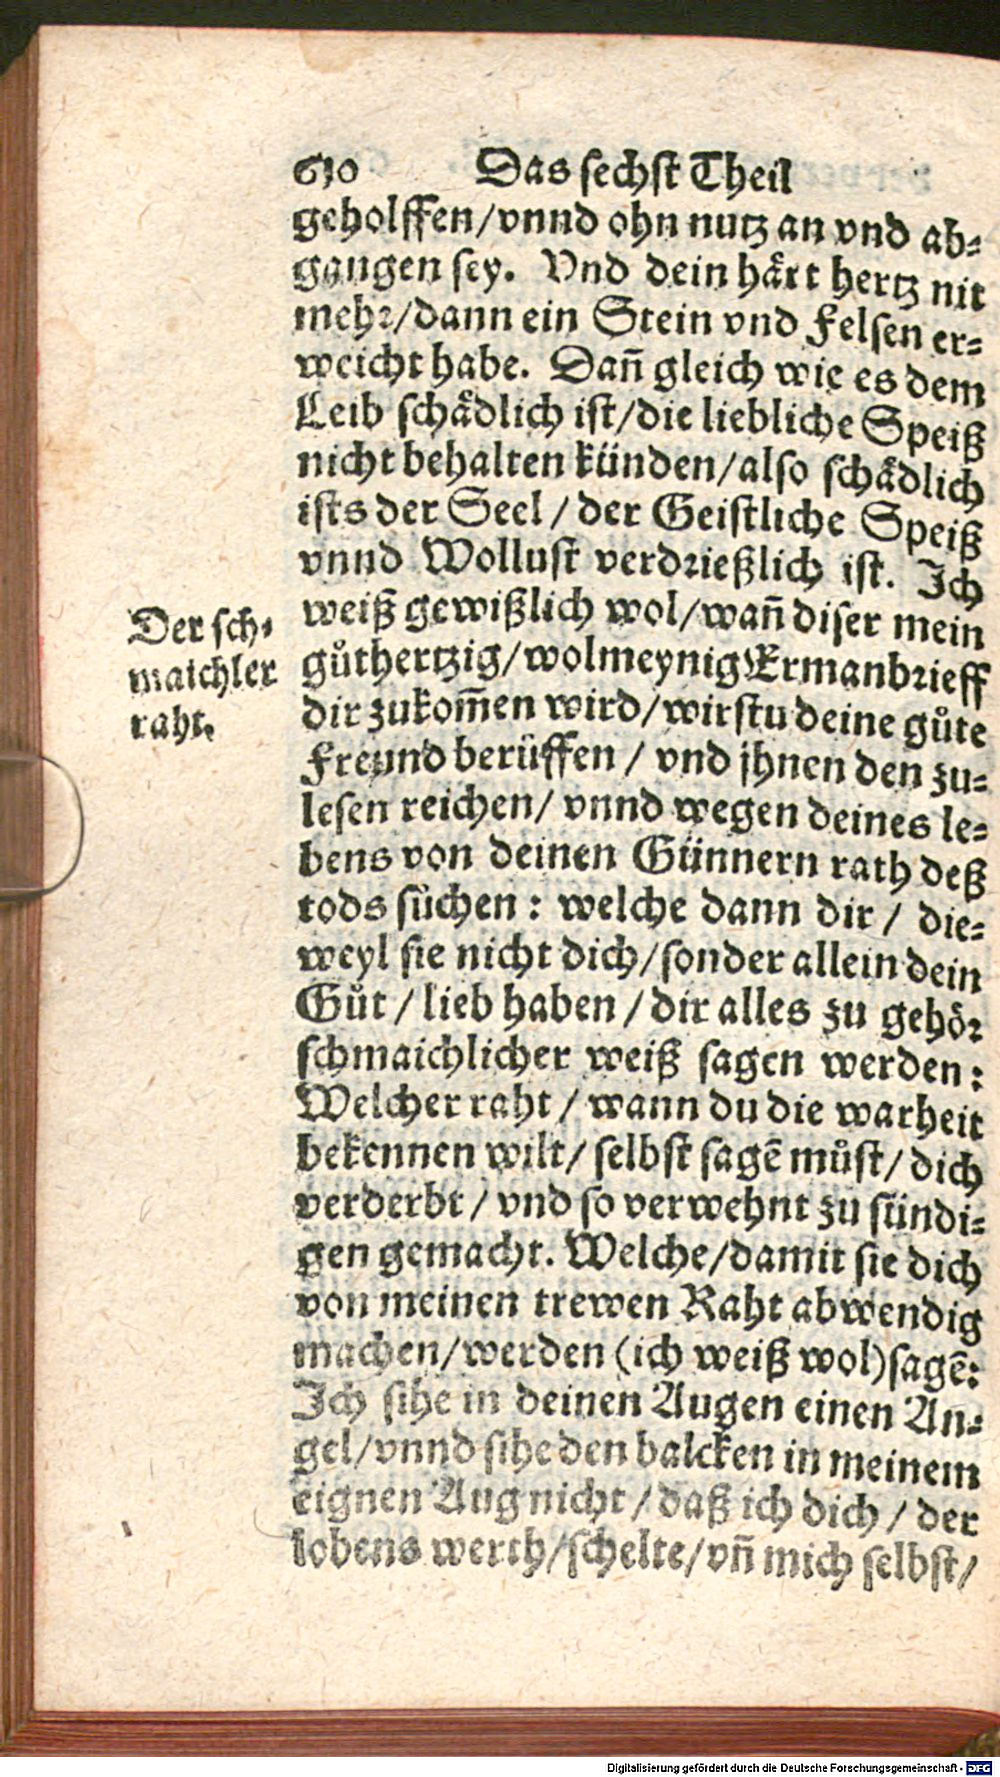 630 Das sechst Theil
geholffen/vnnd ohn nutz an vnd ab⸗
gangen sey. Vnd dein haͤrt hertz nit
mehr/dann ein Stein vnd Felsen er⸗
weicht habe. Dañ gleich wie es dem
Leib schaͤdlich ist/die liebliche Speiß
nicht behalten künden/also schaͤdlich
ists der Seel/der Geistliche Speiß
vnnd Wollust verdrießlich ist. Ich
weiß gewißlich wol/wañ diser mein
guͦthertzig/wolmeynig Ermanbrieff
dir zukom̄en wird/wirstu deine guͦte
Freund berüffen/vnd jhnen den zu⸗
lesen reichen/vnnd wegen deines le⸗
bens von deinen Günnern rath deß
tods suͦchen: welche dann dir/die⸗
weyl sie nicht dich/sonder allein dein
Guͦt/lieb haben/dir alles zu gehoͤr
schmaichlicher weiß sagen werden:
Welcher raht/wann du die warheit
bekennen wilt/selbst sagē muͦst/dich
verderbt/vnd so verwehnt zu sündi⸗
gen gemacht. Welche/damit sie dich
von meinen trewen Raht abwendig
machen/werden (ich weiß wol) sagē:
Ich sihe in deinen Augen einen An⸗
gel/vnnd sihe den balcken in meinem
eignen Aug nicht/daß ich dich/der
lobens werth/schelte/vñ mich selbst/
Der sch⸗
maichler
raht.
Digitalisierung gefördert durch die Deutsche Forschungsgemeinschaft - DFG